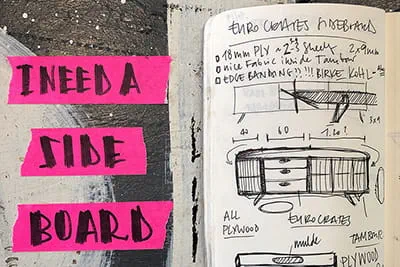 I NEED A
SIDE
BOARD
EURO CRATES SIDEBOARD
18mm PLY ~ 2-3 Sheets 2x9mm
nice Fabric inside Tambour
EDGE BANDING?!!! BIRKE KOHL
3x9
40 60 1.20?
ALL
PLYWOOD
EUROCRATES
mulde
TAMBOUR
PLYWOOD